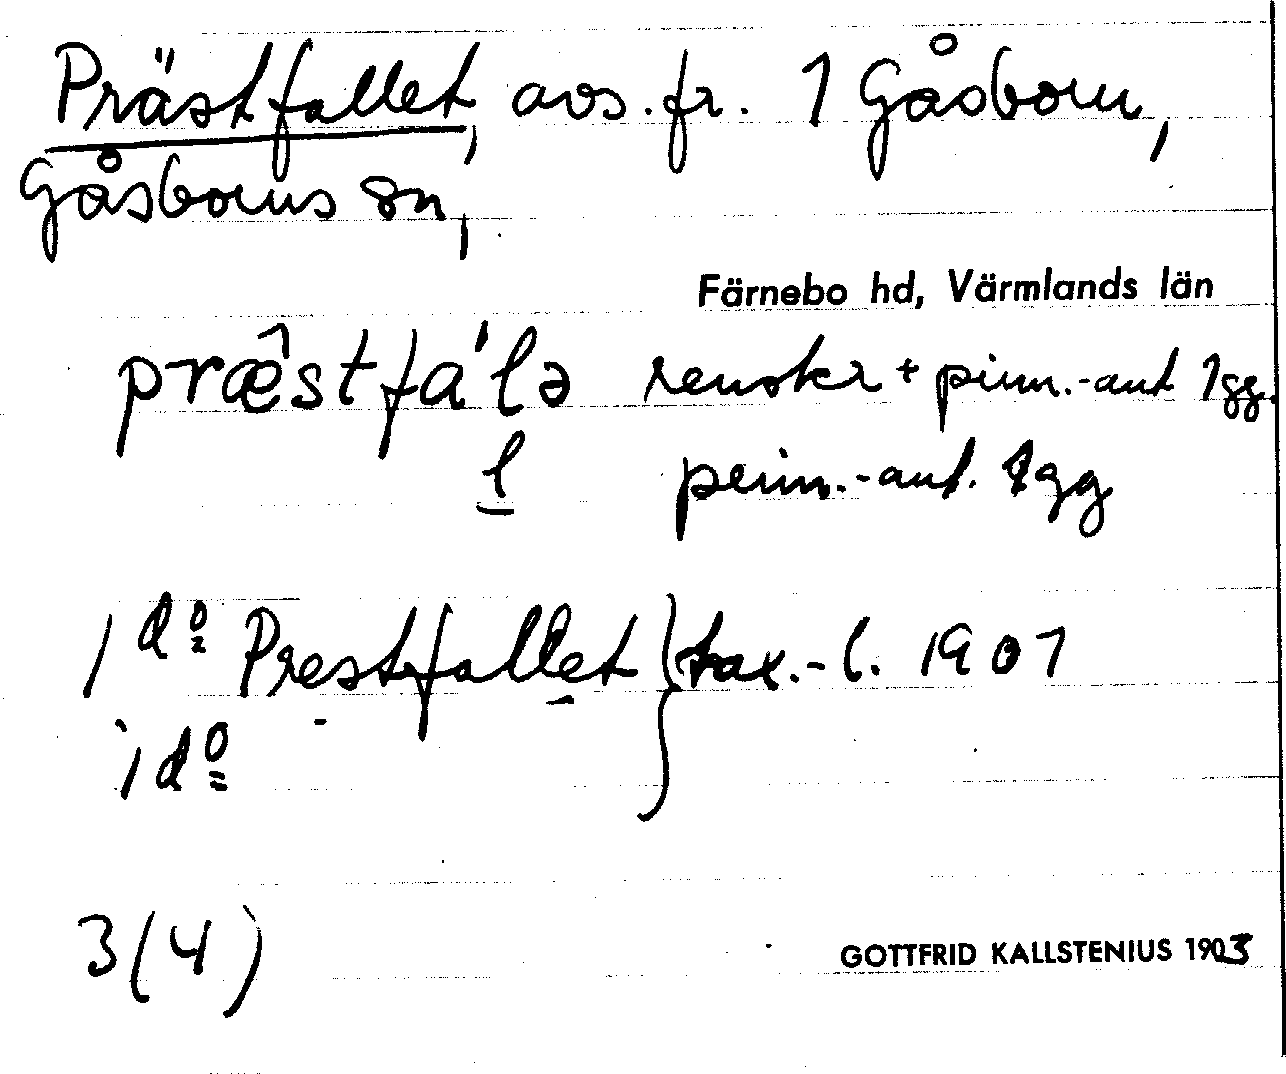 Prästfallet, avs. fr. 1 Gåsborn,
Gåsborns sn,
Färnebo hd, Värmlands län
præ̂stfa'lə renskr + pinn.-ant 1gg.
l penn.-ant. 1gg
/ dº Prestfallet } tax.-l. 1907
/ dº
3(4)
GOTTFRID KALLSTENIUS 1903